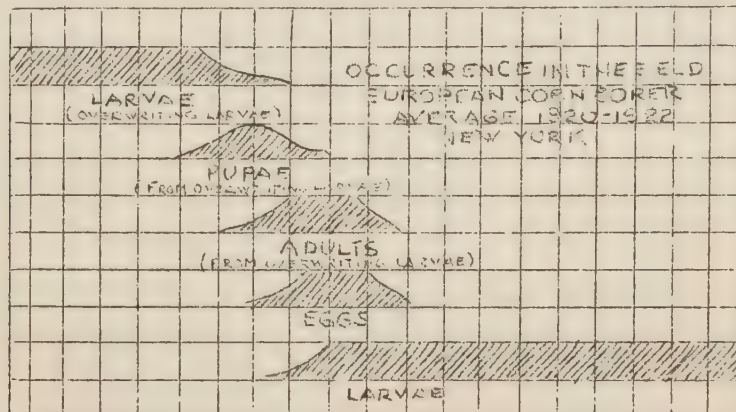 OCCURRENCE IN THE FIELD
EUROPEAN CORN BORER
AVERAGE 1920-1922
NEW YORK
LARVAE
(OVERWRITING LARVAE)
PUPAE
(FROM OVERWRITING LARVAE)
ADULTS
(FROM OVERWRITING LARVAE)
EGGS
LARVAE